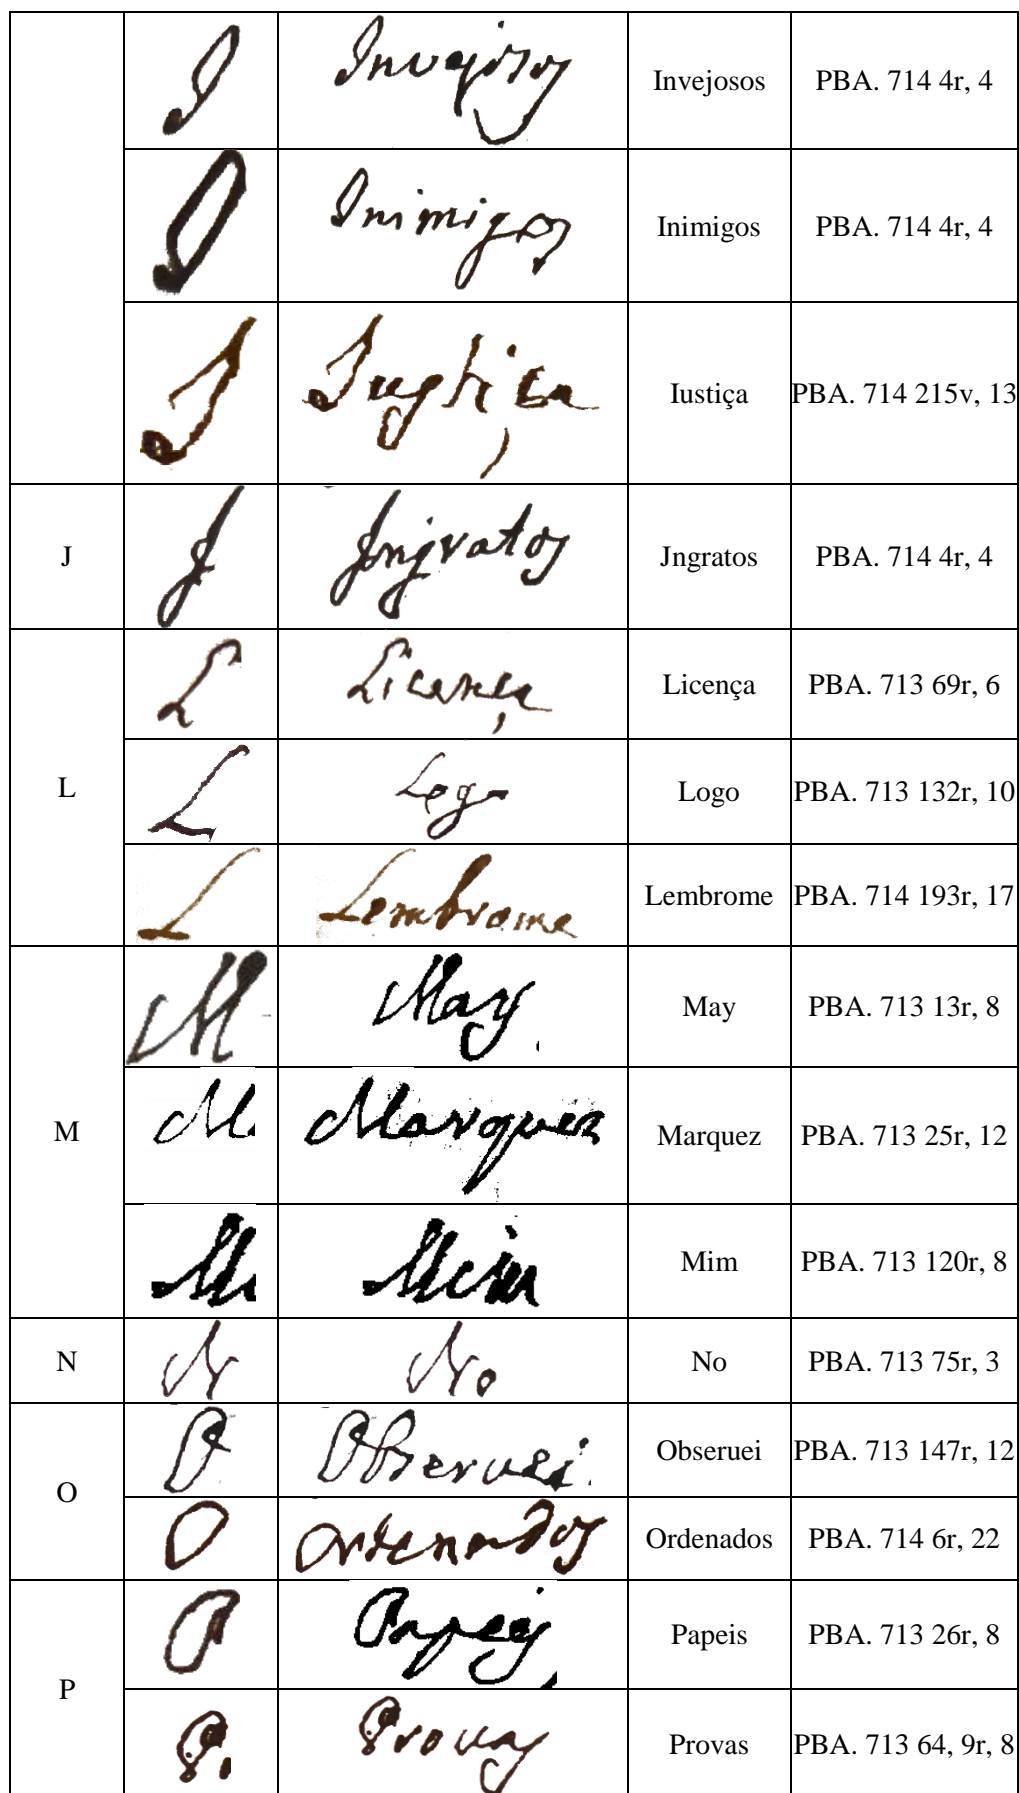 I Invejosos Invejosos PBA. 714 4r, 4
I Inimigos Inimigos PBA. 714 4r, 4
I Iustiça Iustiça PBA. 714 215v, 13
J J Jngratos Jngratos PBA. 714 4r, 4
L L Licença Licença PBA. 713 69r, 6
L Logo Logo PBA. 713 132r, 10
L Lembrome Lembrome PBA. 714 193r, 17
M M May. May PBA. 713 13r, 8
M Marquez Marquez PBA. 713 25r, 12
M Mim Mim PBA. 713 120r, 8
N N No No PBA. 713 75r, 3
O O Obseruei. Obseruei PBA. 713 147r, 12
O Ordenados Ordenados PBA. 714 6r, 22
P P Papeis Papeis PBA. 713 26r, 8
P Provas Provas PBA. 713 64, 9r, 8